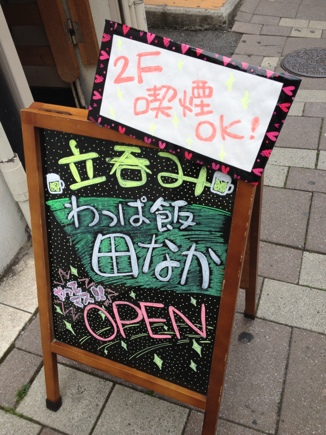 2F
喫煙
OK!
立呑み
わっぱ飯
田なか
OPEN